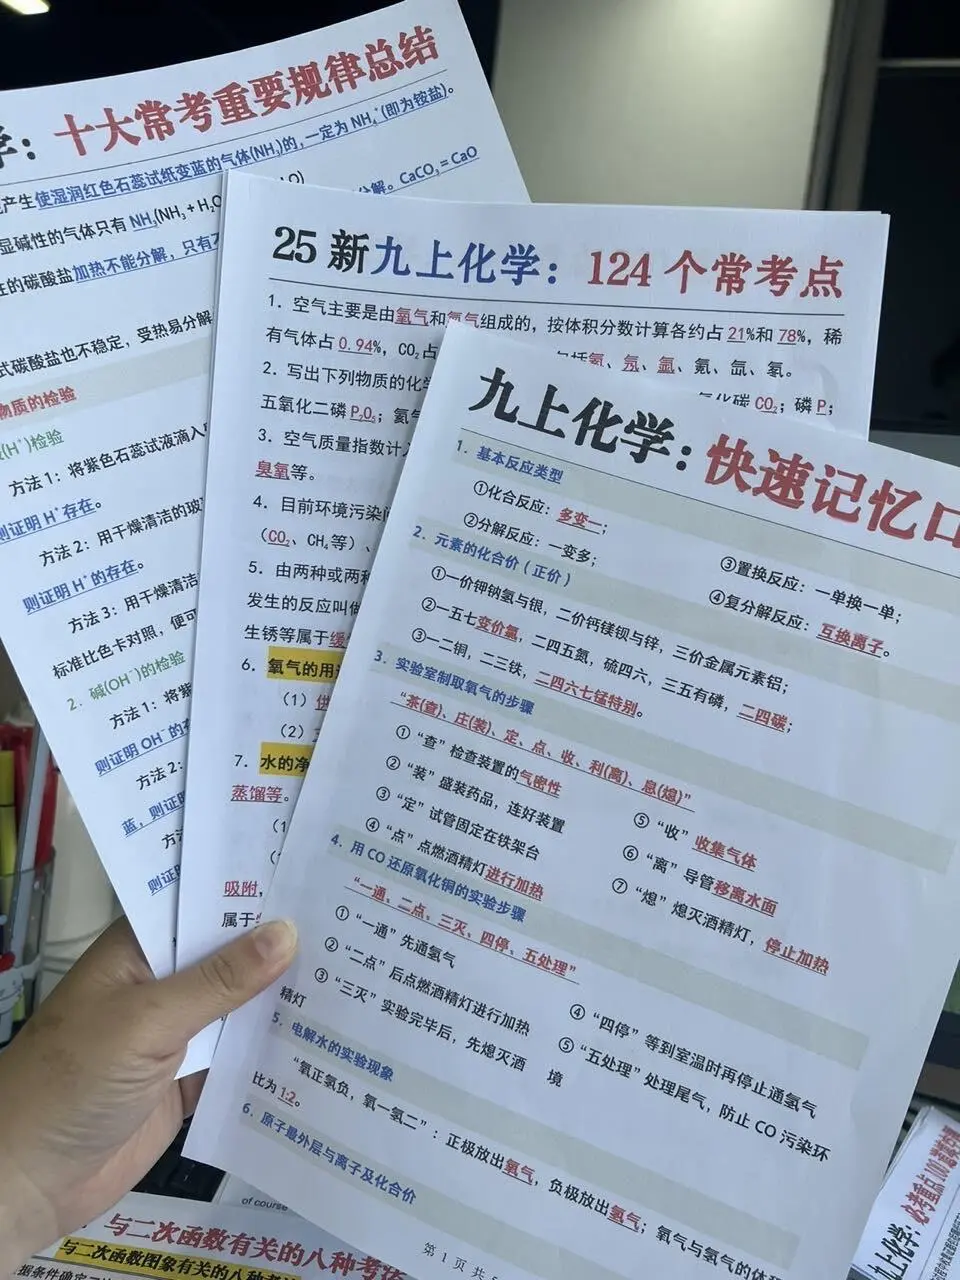 学：十大常考重要规律总结
产生使湿润红色石蕊试纸变蓝的气体(NH₃)的，一定为 NH₄⁺(即为铵盐)。
显碱性的气体只有 NH₃(NH₃ + H₂O
性的碳酸盐加热不能分解，只有
分解。CaCO₃ = CaO
式碳酸盐也不稳定，受热易分解
物质的检验
(H⁺)检验
方法 1：将紫色石蕊试液滴入
则证明 H⁺ 存在。
方法 2：用干燥清洁的玻
则证明 H⁺ 的存在。
方法 3：用干燥清洁
标准比色卡对照，便可
2. 碱(OH⁻)的检验
方法 1：将紫
则证明 OH⁻ 的存
方法 2：
蓝，则证明
方法
则证
25 新九上化学：124 个常考点
1. 空气主要是由氧气和氮气组成的，按体积分数计算各约占 21%和 78%，稀
有气体占 0.94%，CO₂占
包括氦、氖、氩、氪、氙、氡。
2. 写出下列物质的化学
氧化碳 CO₂；磷 P；
五氧化二磷 P₂O₅；氦气
3. 空气质量指数计入
臭氧等。
4. 目前环境污染问
（CO₂、CH₄等）、
5. 由两种或两种
发生的反应叫做
生锈等属于缓
6. 氧气的用途
（1）供
（2）
7. 水的净
蒸馏等。
（1
吸附，
属于
九上化学：快速记忆口
1. 基本反应类型
①化合反应：多变一；
②分解反应：一变多；
③置换反应：一单换一单；
④复分解反应：互换离子。
2. 元素的化合价（正价）
①一价钾钠氢与银，二价钙镁钡与锌，三价金属元素铝；
②一五七变价氯，二四五氮，硫四六，三五有磷，二四碳；
③一二铜，二三铁，二四六七锰特别。
3. 实验室制取氧气的步骤
“茶(查)、庄(装)、定、点、收、利(离)、息(熄)”
①“查”检查装置的气密性
②“装”盛装药品，连好装置
③“定”试管固定在铁架台
④“点”点燃酒精灯进行加热
⑤“收”收集气体
⑥“离”导管移离水面
⑦“熄”熄灭酒精灯，停止加热
4. 用 CO 还原氧化铜的实验步骤
“一通、二点、三灭、四停、五处理”
①“一通”先通氢气
②“二点”后点燃酒精灯进行加热
③“三灭”实验完毕后，先熄灭酒
精灯
④“四停”等到室温时再停止通氢气
⑤“五处理”处理尾气，防止 CO 污染环
境
5. 电解水的实验现象
“氧正氢负，氧一氢二”：正极放出氧气，负极放出氢气；氧气与氢气的体积
比为 1:2。
6. 原子最外层与离子及化合价
第 1 页 共
of course
与二次函数有关的八种考法
与二次函数图象有关的八种考
据条件确定
九上化学：